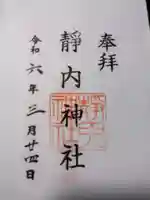 奉拝
靜内神社
令和六年三月廿四日